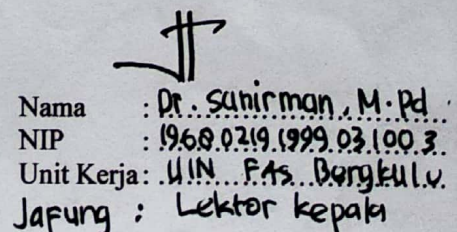 Nama : Dr. Sunirman, M.Pd
NIP : 19680219.1999.03.100.3
Unit Kerja: UIN FAS Bengkulu
Jafung : Lektor kepala